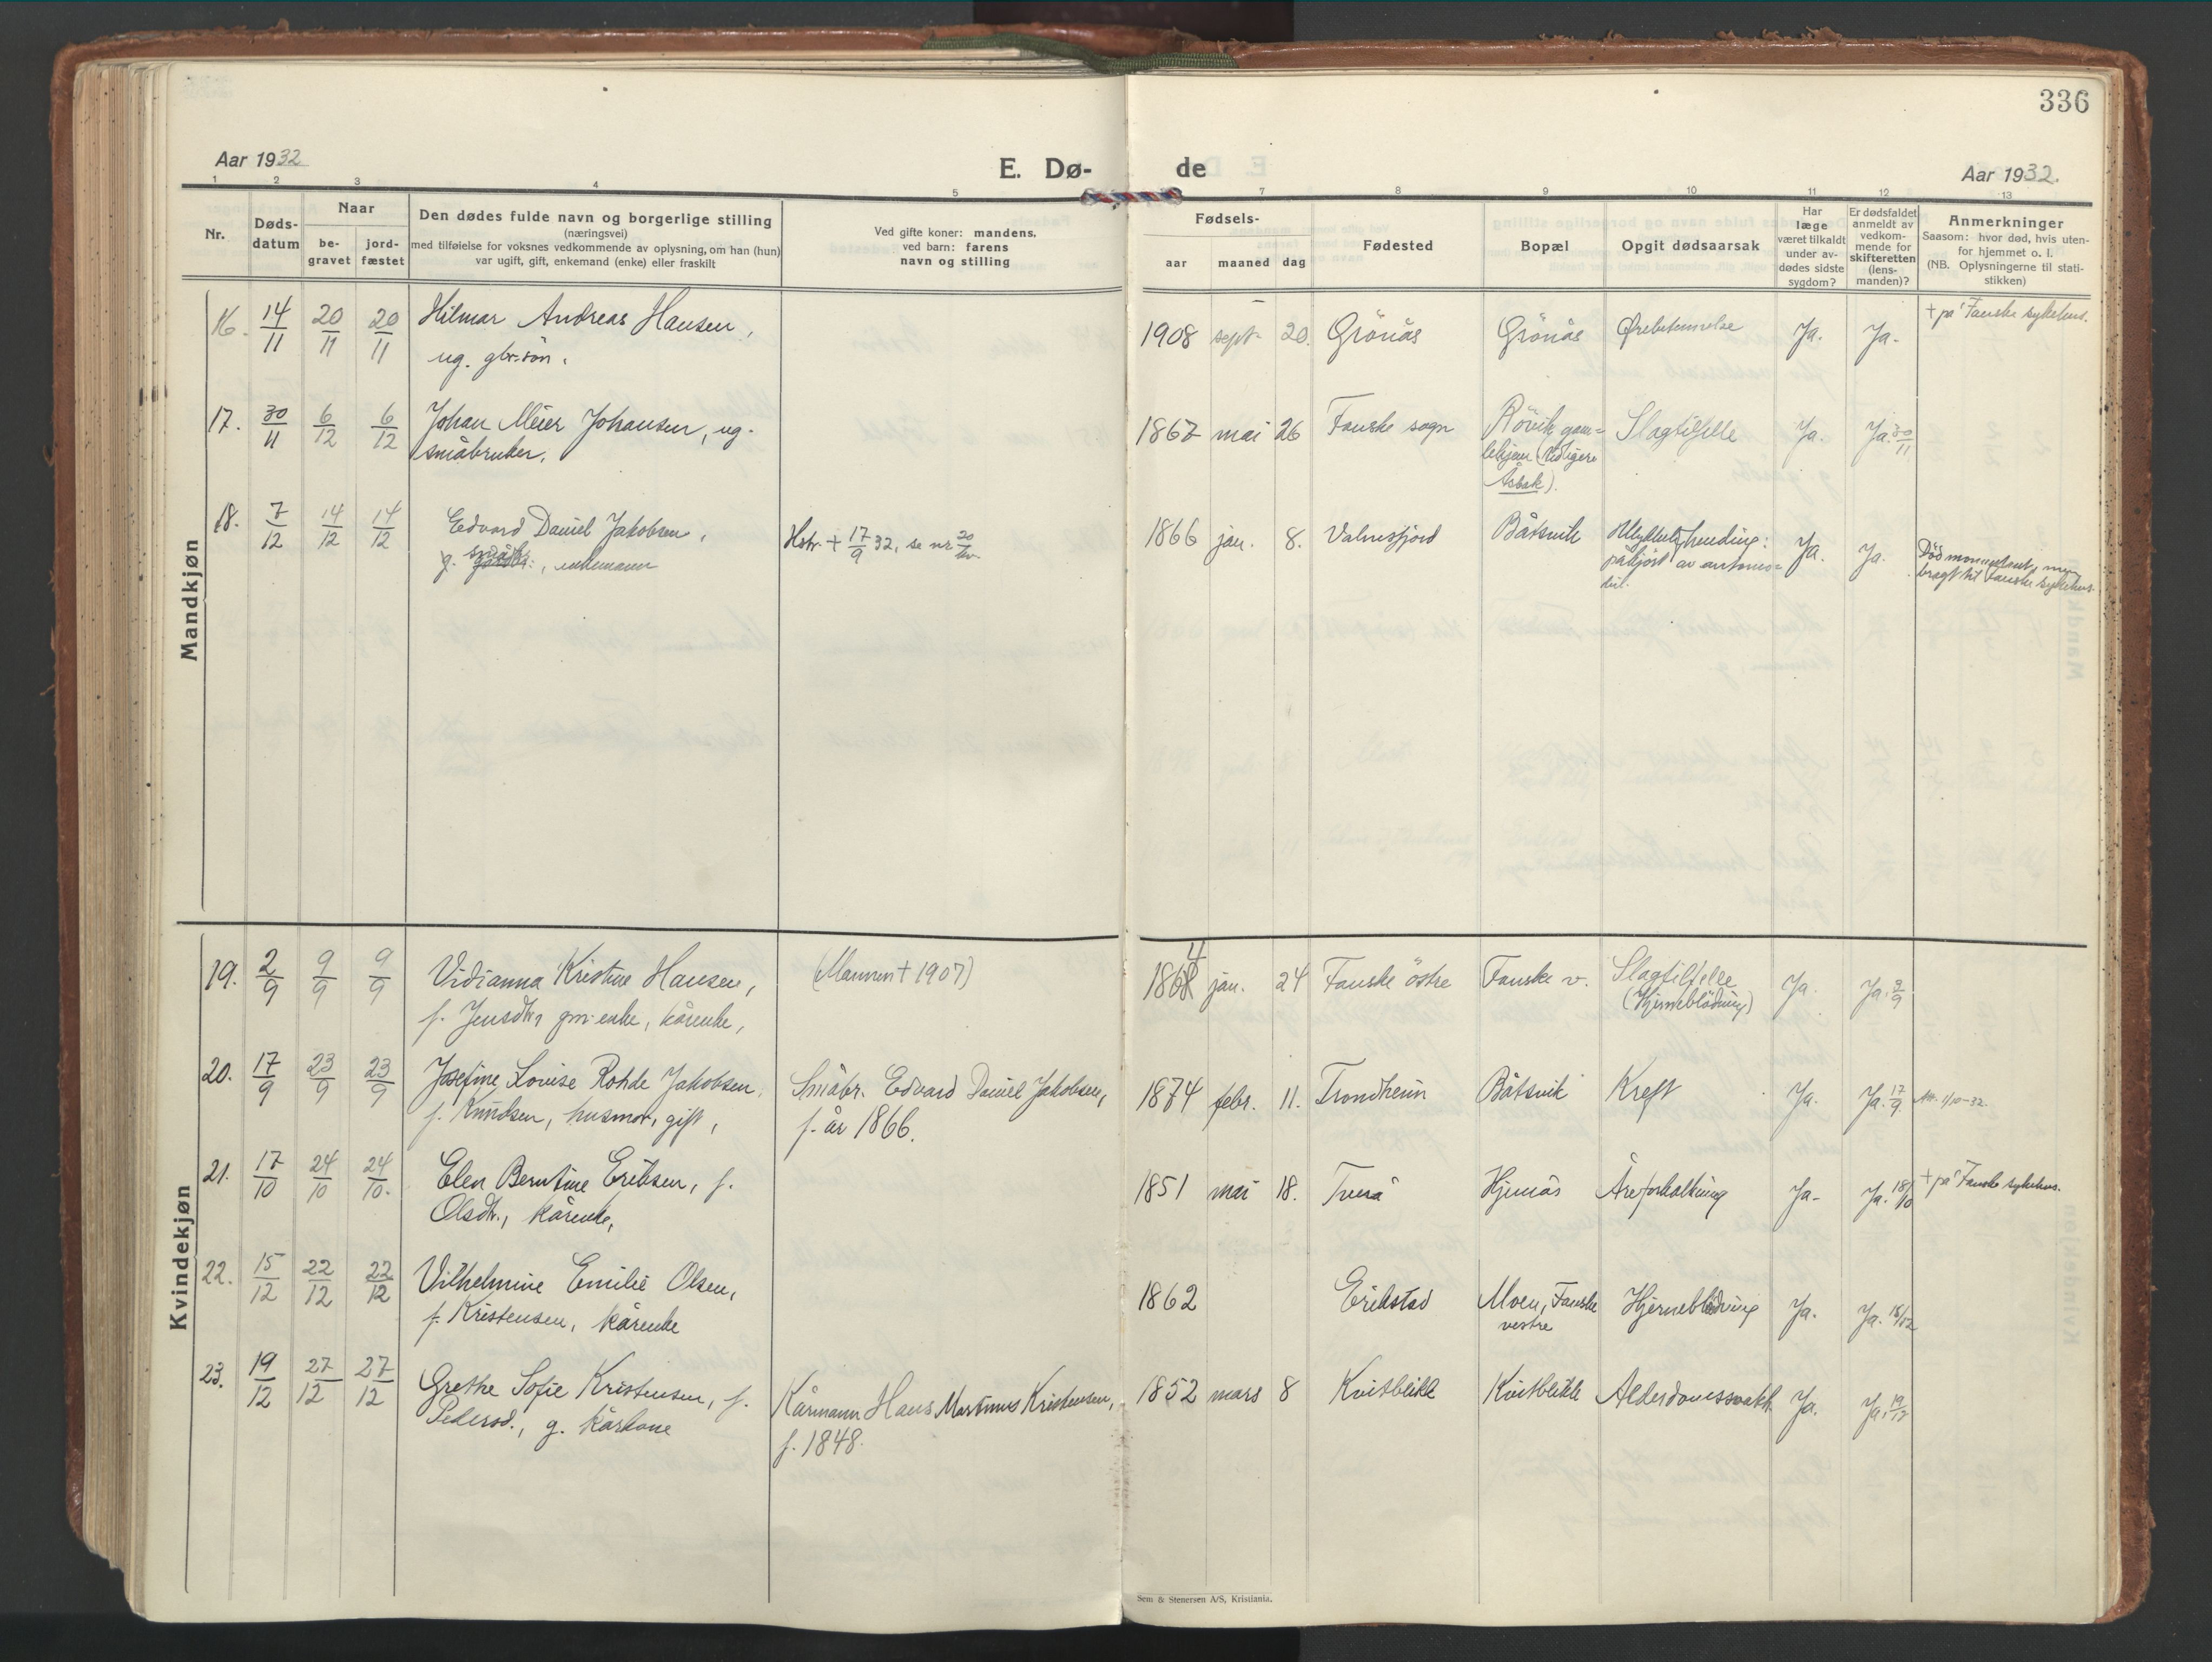 336
Aar 1932
E. Dø-
de
Aar 1932.
1 2 3 4 5 7 8 9 10 11 12 13
Nr.
Døds-
datum
Naar
be-
gravet
jord-
fæstet
Den dødes fulde navn og borgerlige stilling
(næringsvei)
med tilføielse for voksnes vedkommende av oplysning, om han (hun)
var ugift, gift, enkemand (enke) eller fraskilt
Ved gifte koner: mandens,
ved barn: farens
navn og stilling
Fødsels-
aar maaned dag
Fødested
Bopæl
Opgit dødsaarsak
Har
læge
været tilkaldt
under av-
dødes sidste
sygdom?
Er dødsfaldet
anmeldt av
vedkom-
mende for
skifteretten
(lens-
manden)?
Anmerkninger
Saasom: hvor død, hvis uten-
for hjemmet o. l.
(NB. Oplysningerne til stati-
stikken)
Mandkjøn
16. 14/11 20/11 20/11 Hilmar Andreas Hansen, 1908 sept. 20. Grönås Grönås Ørebetennelse Ja. Ja. + på Fauske sykehus.
ug. gbr.sön.
17. 30/11 6/12 6/12 Johan Meier Johansen, ug. 1867 mai 26 Fauske sogn Rövik gam= Slagtilfelle Ja. Ja. 30/11
småbruker. lehjem (tidligere
Åsbak).
18. 7/12 14/12 14/12 Edvard Daniel Jakobsen, Hstr. + 17/9 32, se nr 20/kv. 1866 jan. 8. Valnesfjord Båtsvik Ulykkeshending: Ja. Ja. Död momentant, men
g. småbr. gårdbr., enkemann påkjört av automo= bragt til Fauske sykehus.
bil.
Kvindekjøn
19. 2/9 9/9 9/9 Vidianna Kristine Hansen, (Mannen + 1907) 1864 jan. 24 Fauske östre Fauske v. Slagtilfelle Ja. Ja. 3/9
f. Jensdtr, gm. enke, kårenke, (Hjerneblödning)
20. 17/9 23/9 23/9 Josefine Lovise Rohde Jakobsen, Småbr. Edvard Daniel Jakobsen, 1874 febr. 11. Trondheim Båtsvik Kreft Ja. Ja. 17/9 Att. 1/10-32.
f. Knudsen, husmor, gift, f. år 1866.
21. 17/10 24/10 24/10. Elen Berntine Eriksen, f. 1851 mai 18. Tverå Hjemås Åreforkalkning Ja. Ja. 18/10 + på Fauske sykehus.
Olsdtr., kårenke,
22. 15/12 22/12 22/12 Vilhelmine Emilie Olsen, 1862 Erikstad Moen, Fauske Hjerneblödning Ja. Ja. 16/12
f. Kristensen, kårenke vestre
23. 19/12 27/12 27/12 Grethe Sofie Kristensen, f. Kårmann Hans Martinus Kristensen, 1852 mars 8 Kvitblikk Kvitblikk Alderdomssvakh. Ja. Ja. 19/12
Pedersd., g. kårkone f. 1848.
Sem & Stenersen A/S, Kristiania.